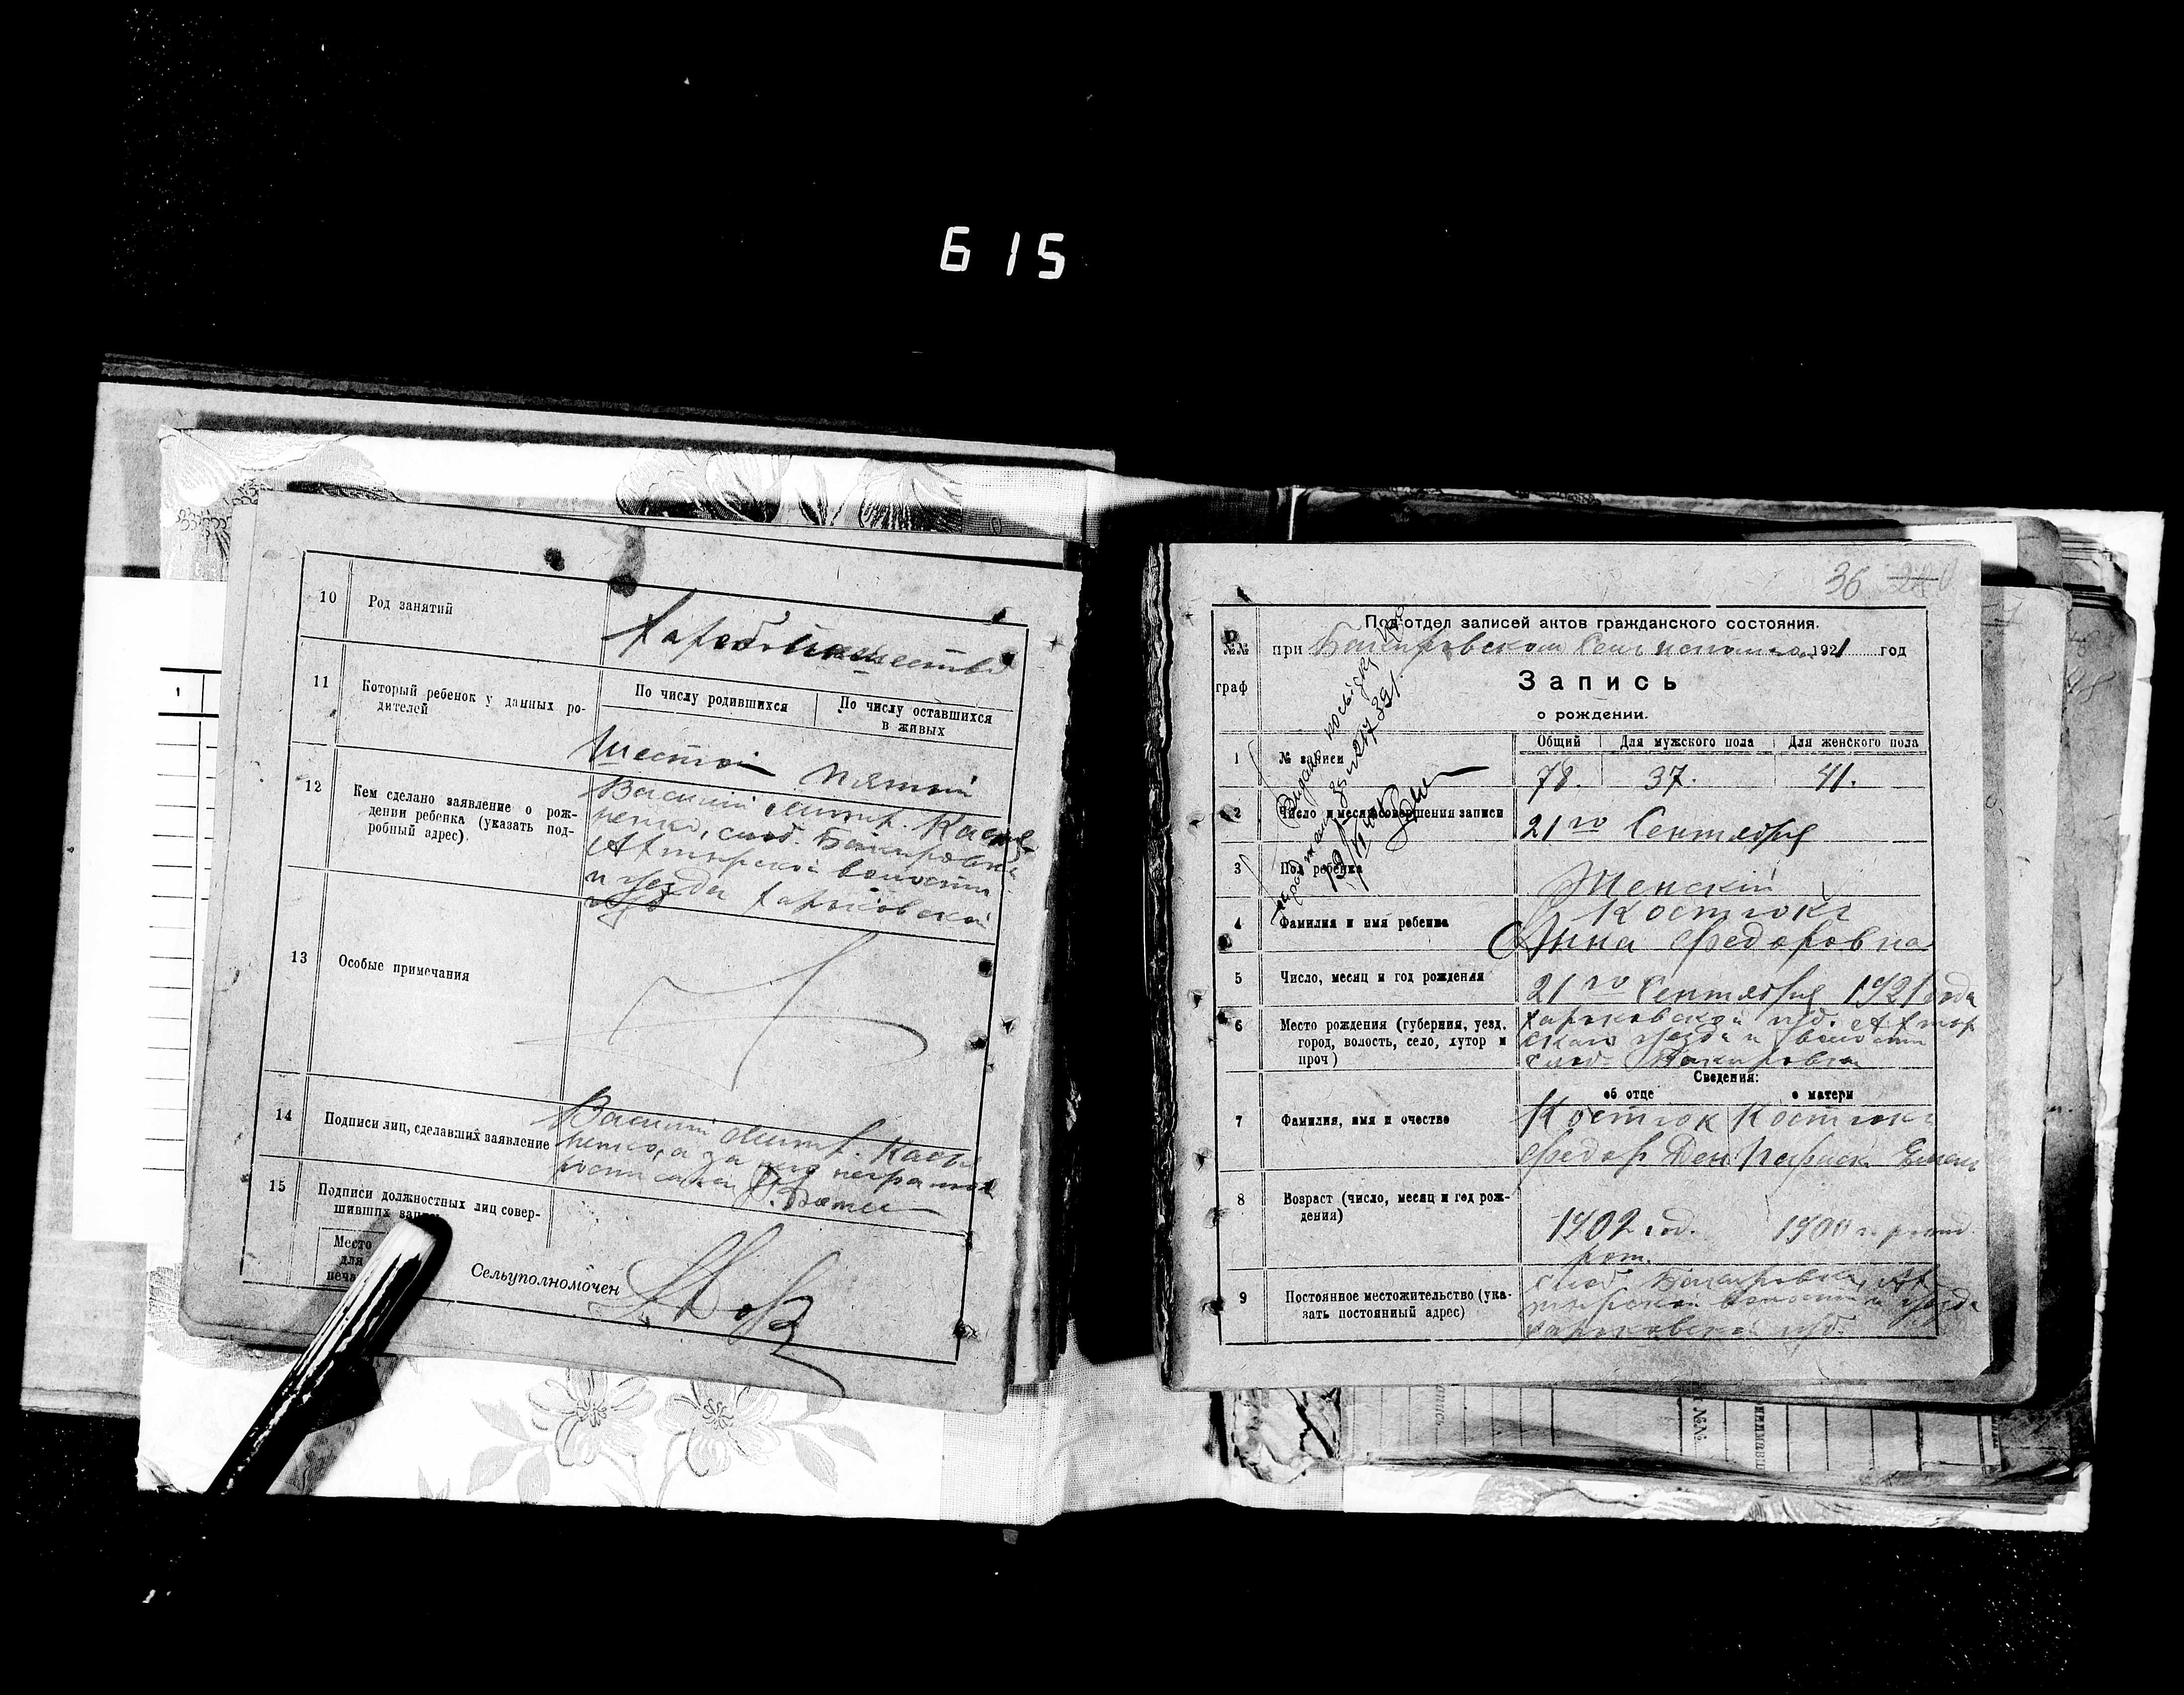 615
10 Род занятий
Хлебопашество
11 Который ребенок у данных ро-
дителей
По числу родившихся
По числу оставшихся
в живых
Шестой Пятый
12 Кем сделано заявление о рож-
дении ребенка (указать под-
робный адрес).
Василий Митр.
слоб. Бакировки
Ахтырской волости
и уезда Харьковской
губ
13 Особые примечания
14 Подписи лиц, сделавших заявление
Василий Митр.
а за него неграмот
15 Подписи должностных лиц совер-
шивших запи
Место
для
печа
Сельуполномочен
36
№№
граф
Под'отдел записей актов гражданского состояния.
при Бакировском 1921 год
Запись
о рождении.
1 № записи
Общий Для мужского пола Для женского пола
78. 37. 41.
2 Число и месяц совершения записи
21го Сентября
3 Пол ребенка
Женский
4 Фамилия и имя ребенка
Костюк
Анна Федоровна
5 Число, месяц и год рождения
21го Сентября 1921 года
6 Место рождения (губерния, уезд,
город, волость, село, хутор и
проч)
Харьковской губ. Ахтыр
скаго уезда и волости
слоб. Бакировка
Сведения:
об отце о матери
7 Фамилия, имя и очество
Костюк Костюк
Федор Ден Параск. Емель
8 Возраст (число, месяц и год рож-
дения)
1902 год. 1900 г.
9 Постоянное местожительство (ука-
зать постоянный адрес)
слоб. Бакировка, Ах
тырской волости и уезда
Харьковской губ.